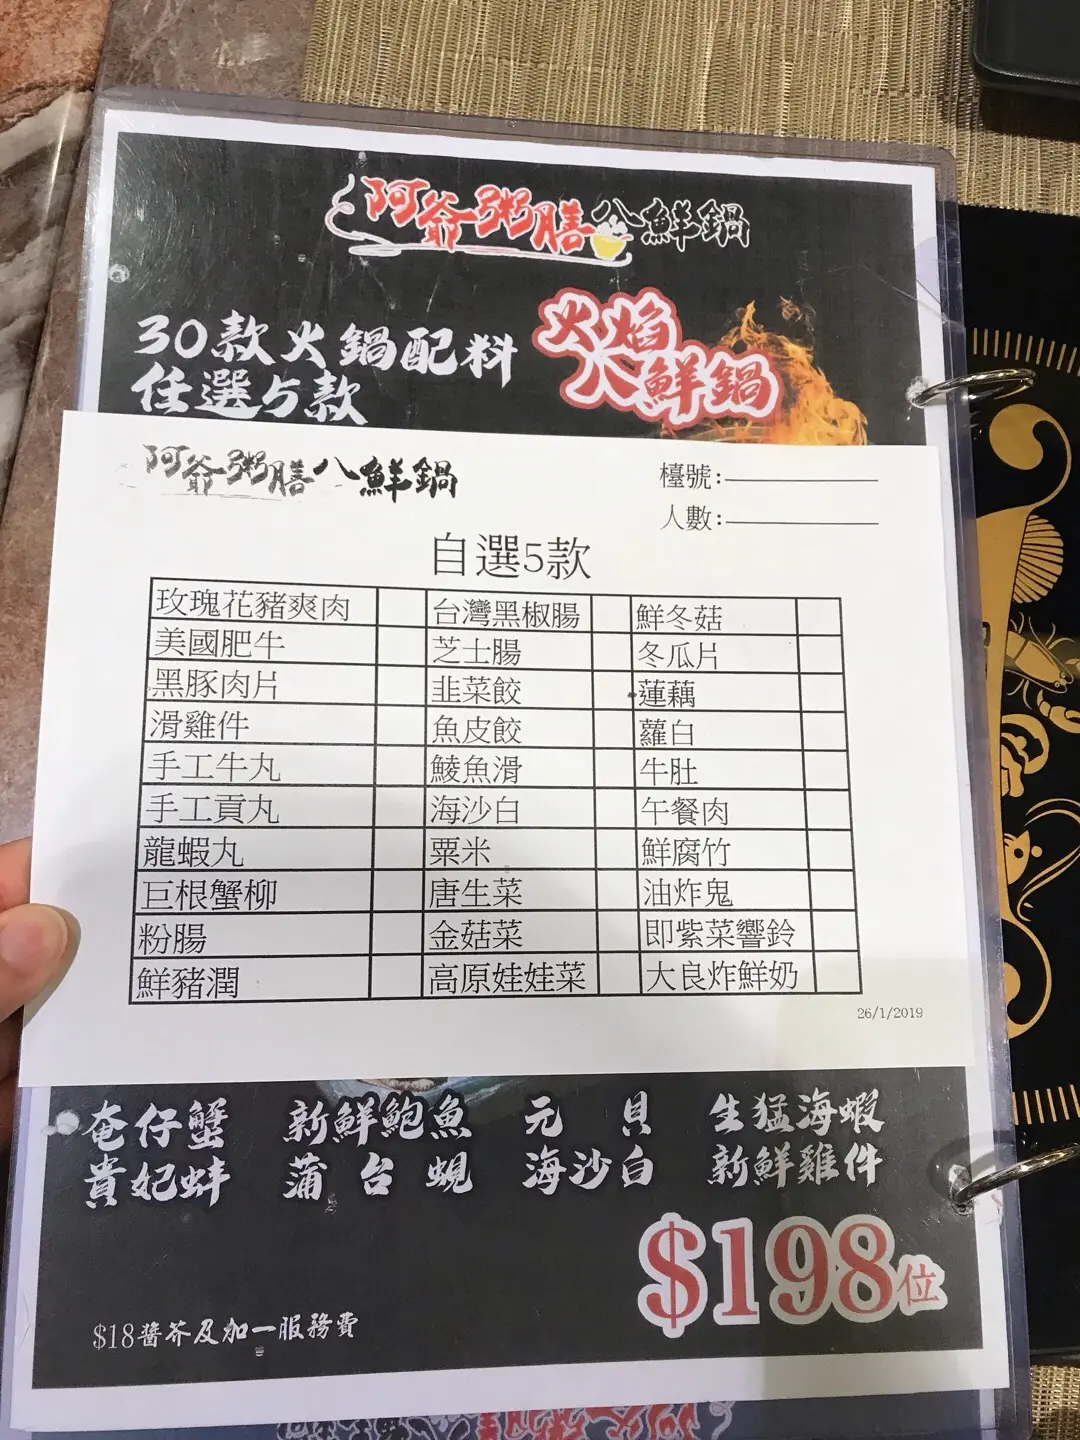 阿爺粥膳八鮮鍋
30款火鍋配料
任選5款
火焰
八鮮鍋
阿爺粥膳八鮮鍋
檯號:
人數:
自選5款
玫瑰花豬爽肉 台灣黑椒腸 鮮冬菇
美國肥牛 芝士腸 冬瓜片
黑豚肉片 韭菜餃 蓮藕
滑雞件 魚皮餃 蘿白
手工牛丸 鯪魚滑 牛肚
手工貢丸 海沙白 午餐肉
龍蝦丸 粟米 鮮腐竹
巨根蟹柳 唐生菜 油炸鬼
粉腸 金菇菜 即紫菜響鈴
鮮豬潤 高原娃娃菜 大良炸鮮奶
26/1/2019
奄仔蟹 新鮮鮑魚 元貝 生猛海蝦
貴妃蚌 蒲台蜆 海沙白 新鮮雞件
$198位
$18醬芥及加一服務費